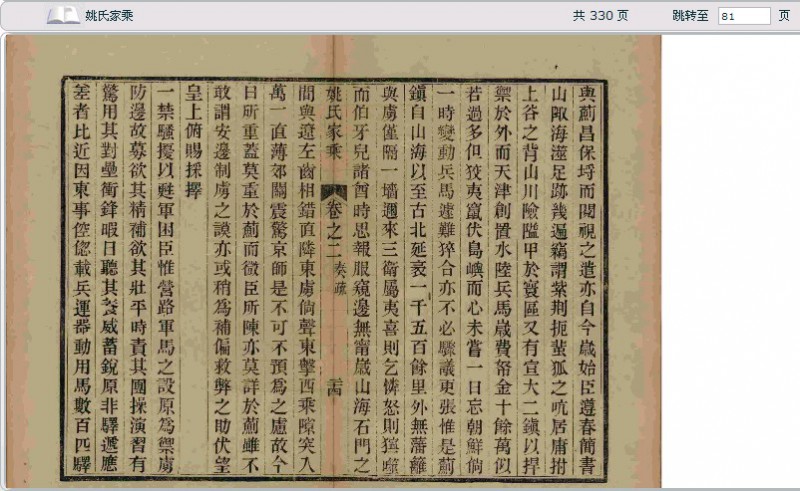 姚氏家乘
共 330 页
跳转至 81 页
與薊昌保埒而閱視之遣亦自今歲始臣遵春簡書
山陬海澨足跡幾遍竊謂紫荆扼蜚狐之吭居庸拊
上谷之背山川險隘甲於寰區又有宣大二鎮以捍
禦於外而天津創置水陸兵馬歲費帑金十餘萬似
若過多但狡夷竄伏島嶼而心未嘗一日忘朝鮮倘
一時變動兵馬遽難猝合亦不必驟議更張惟是薊
鎮自山海以至古北延袤一千五百餘里外無藩籬
與虜僅隔一墻邇來三衛屬夷喜則乞憐怒則狂噬
而伯牙兒諸酋時思報服窺邊無甯歲山海石門之
姚氏家乘 卷之二 奏疏
間與遼左齒相錯直隣東虜倘聲東擊西乘隙突入
萬一直薄郊關震驚京師是不可不預為之慮故今
日所重蓋莫重於薊而微臣所陳亦莫詳於薊雖不
敢謂安邊制虜之謨亦或稍為補偏救弊之助伏望
皇上俯賜採擇
一禁騷擾以甦軍困臣惟營路軍馬之設原為禦虜
防邊故募欲其精補欲其壯平時責其團操演習有
驚用其對壘衝鋒暇日聽其養威蓄銳原非驛遞應
差者比近因東事倥偬載兵運器動用馬數百匹驛